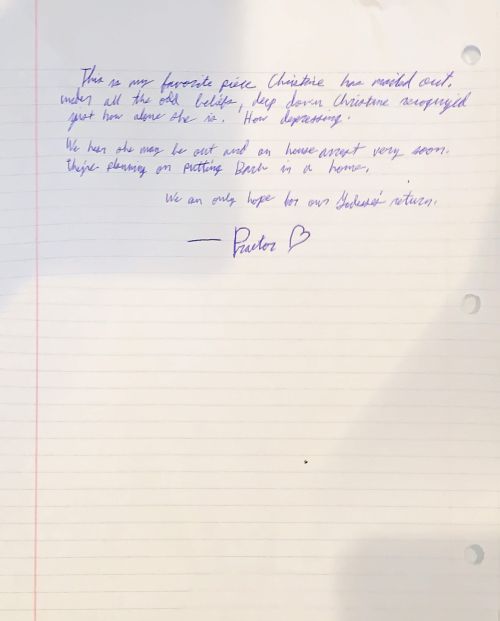 This is my favorite piece Christine has mailed out.
under all the odd beliefs, deep down Christine recognized
just how alone she is. How depressing.
We hear she may be out and on house arrest very soon.
they're planning on putting Barb in a home.
We can only hope for our return.
— Praetor ♡